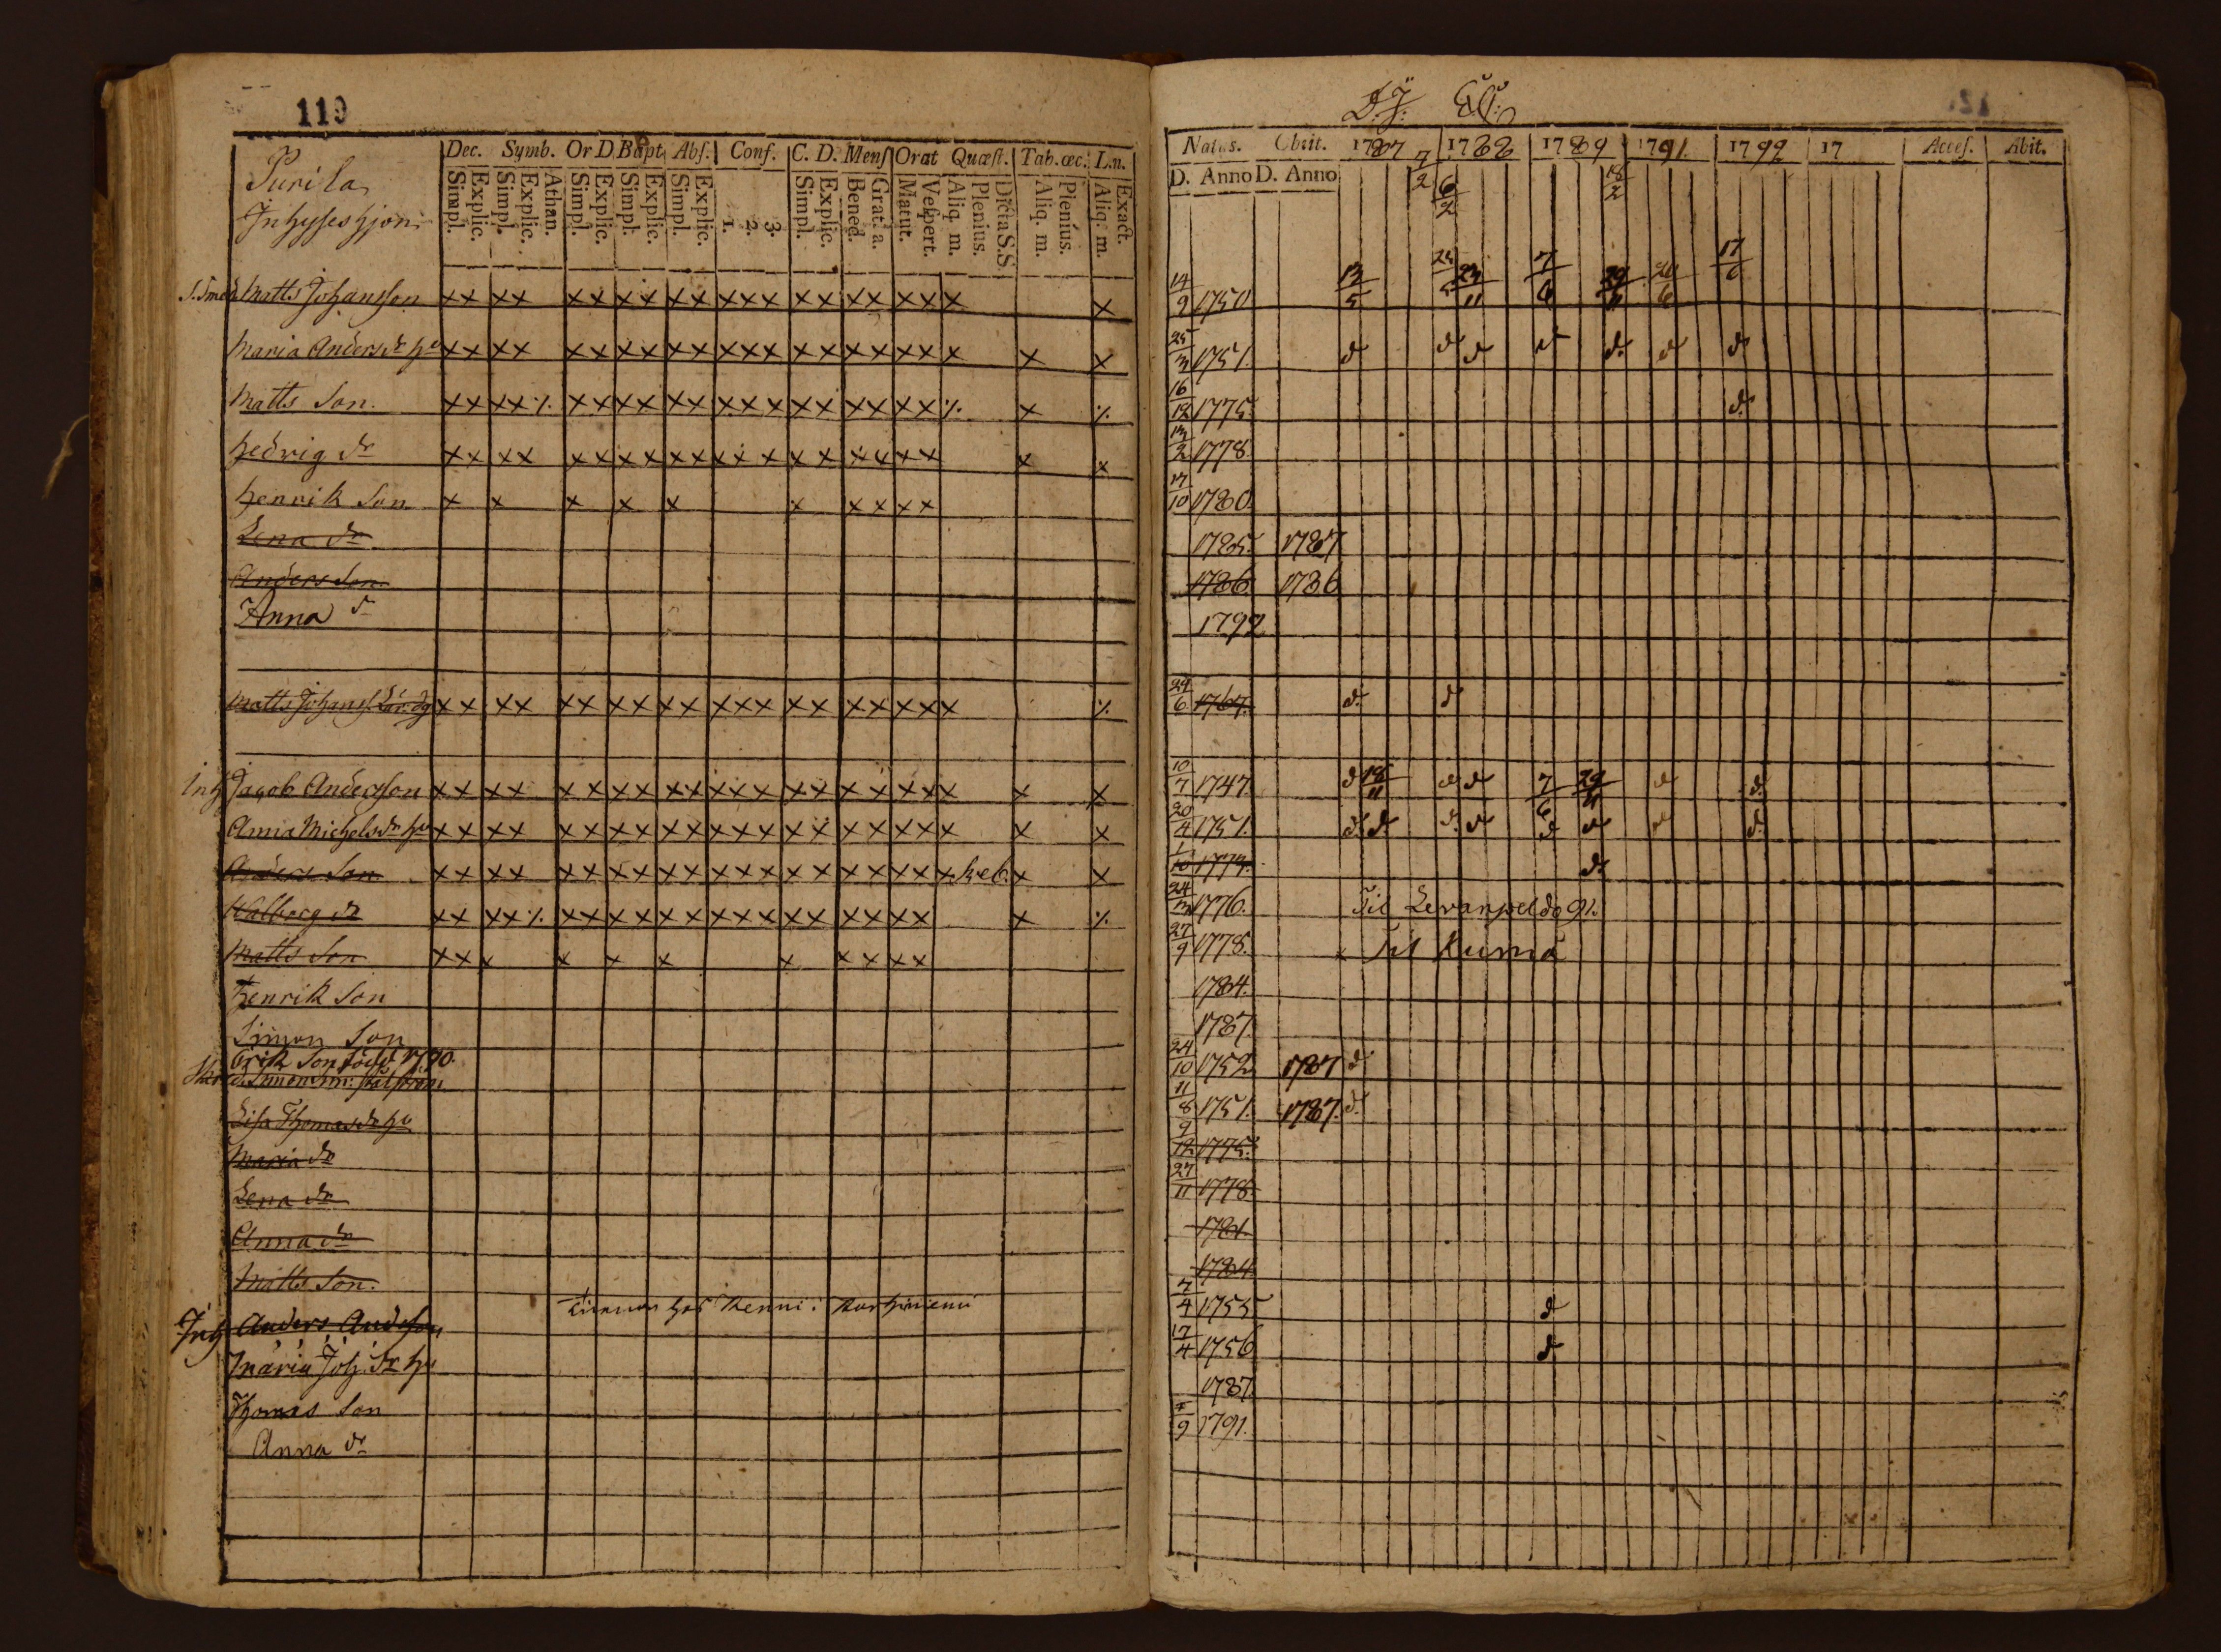 119
Dec. Symb. Or D Bapt Abs. Conf. C. D. Mens Orat Quæst. Tab. œc. L.n.
Simpl. Explic. Simpl. Explic. Athan. Simpl. Explic. Simpl. Explic. Simpl. Explic. 1. 2. 3. Simpl. Explic. Bened. Grat. a. Matut. Vespert. Aliq. m. Plenius. Dicta S.S. Aliq. m. Plenius. Aliq. m. Exact.
Purila
Inhyseshjon
Matts Johansson x x x x x x x x x x x x x x x x x x x x x
Maria Andersdr hu x x x x x x x x x x x x x x x x x x x x x x
Matts Son. x x x x ·/. x x x x x x x x x x x x x x x ·/. x ·/.
Hedvig dr x x x x x x x x x x x x x x x x x x x x x
Henrik Son x x x x x x x x x x
Lena dr
Anders Son
Anna dr
Matts Johanss. x x x x x x x x x x x x x x x x x x x x ·/.
Inh Jacob Andersson x x x x x x x x x x x x x x x x x x x x x x
Anna Michelsdr hu x x x x x x x x x x x x x x x x x x x x x x
Anders Son x x x x x x x x x x x x x x x x x x x x x x
Walborg dr x x x x ·/. x x x x x x x x x x x x x x x x ·/.
Matts Son x x x x x x x x x x x
Henrik Son
Simon Son
Erik Son född 1790
Simon
Lisa Thomasdr hu
Maria dr
Lena dr
Anna dr
Matts Son.
Inh Anders Anderson
Maria Joh. dr hu
Thomas Son
Anna dr
D.J:
Natus. Obiit. 1787 1788 1789 1791 1792 17 Acces. Abit.
D. Anno D. Anno 7/2 6/2 18/2
14/9 1750 13/5 23/11 7/6 29/11 17/6
25/3 1751. d d d d d. d d
16/12 1775. d.
13/2 1778.
17/10 1780.
1785. 1787
1786 1786
1792
24/6 1767. d. d
10/7 1747. d 18/11 d d 7/6 29/11 d d.
20/4 1751. d. d d. d d d d d.
1/10 1774. d.
24/3 1776. Til Levanpeldo 91.
27/9 1778. Til Kuma
1784.
1787.
24/10 1752 1787 d
11/8 1751. 1787. d.
9/12 1775.
27/11 1778.
1781.
1784.
7/4 1755 d
17/4 1756 d
1787.
9 1791.